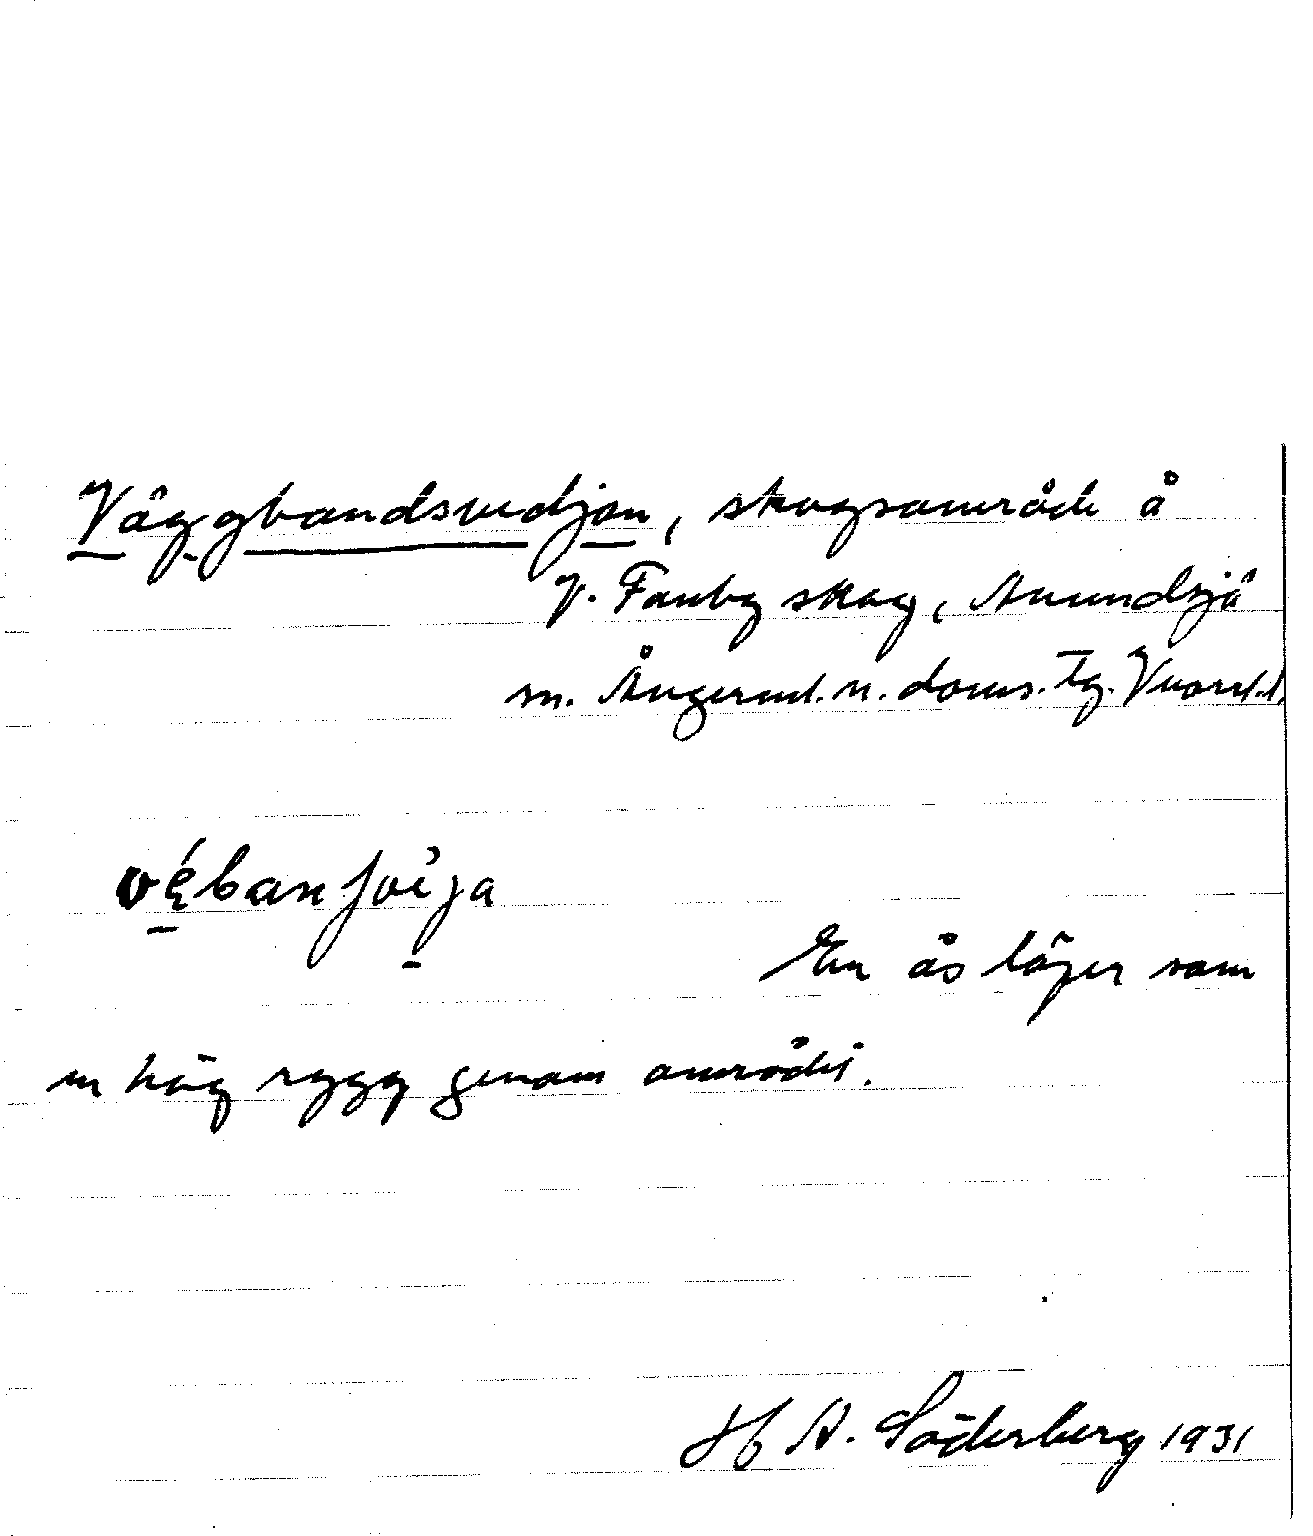 Väggbandsvedjan, skogsområde å
V. Fanby skog, Anundsjö
sn. Ångerml. n. doms. Tg. Vnorrl. l.
En ås löper som
en hög rygg genom området.
H A. Söderberg 1931